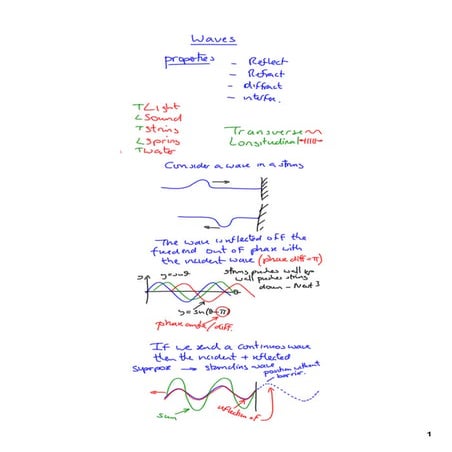 Waves
properties - Reflect
- Refract
- diffract
- interfer.
T Light
L Sound
T string
L Spring
T water
Transverse
Longitudinal
Consider a wave in a string
The wave is reflected off the
fixed end out of phase with
the incident wave (phase diff = π)
string pushes wall up
wall pushes string
down - Newt 3
y = sin θ
θ
y = sin(θ - π)
phase angle / diff.
If we send a continuous wave
then the incident + reflected
→ standing wave
position without
barrier.
sum
reflection of
1